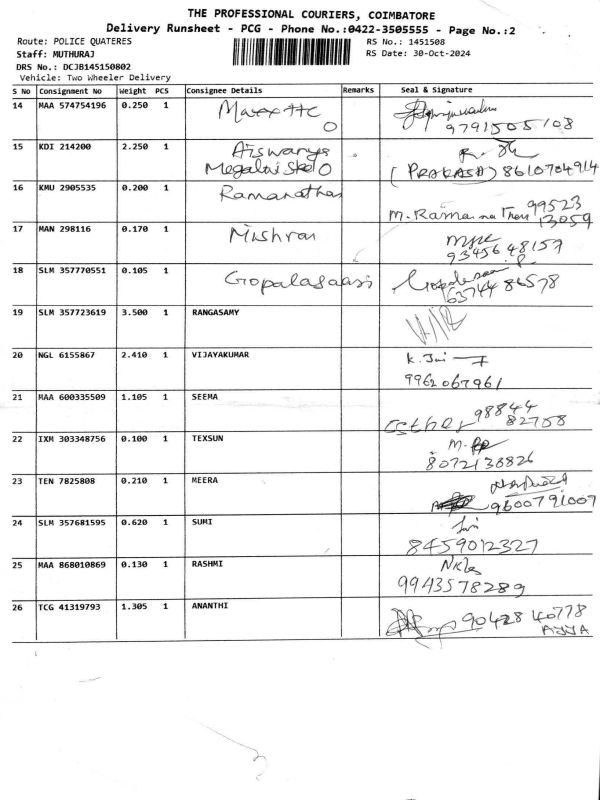 THE PROFESSIONAL COURIERS, COIMBATORE
Delivery Runsheet - PCG - Phone No.:0422-3505555 - Page No.:2
Route: POLICE QUATERES RS No.: 1451508
Staff: MUTHURAJ RS Date: 30-Oct-2024
DRS No.: DCJB145150802
Vehicle: Two Wheeler Delivery
S No Consignment No Weight PCS Consignee Details Remarks Seal & Signature
14 MAA 574754196 0.250 1
9791505108
15 KDI 214200 2.250 1 Aiswarya
(PRAKASH) 8610704914
16 KMU 2905535 0.200 1 Ramanathan
99523
13059
17 MAN 298116 0.170 1
93456 48157
18 SLM 357770551 0.105 1
63744 86578
19 SLM 357723619 3.500 1 RANGASAMY
20 NGL 6155867 2.410 1 VIJAYAKUMAR
9962067961
21 MAA 600335509 1.105 1 SEEMA
Esther 98844
82758
22 IXM 303348756 0.100 1 TEXSUN
8072138826
23 TEN 7825808 0.210 1 MEERA
9600791007
24 SLM 357681595 0.620 1 SUMI
8459012327
25 MAA 868010869 0.130 1 RASHMI
9943578289
26 TCG 41319793 1.305 1 ANANTHI
90428 40778